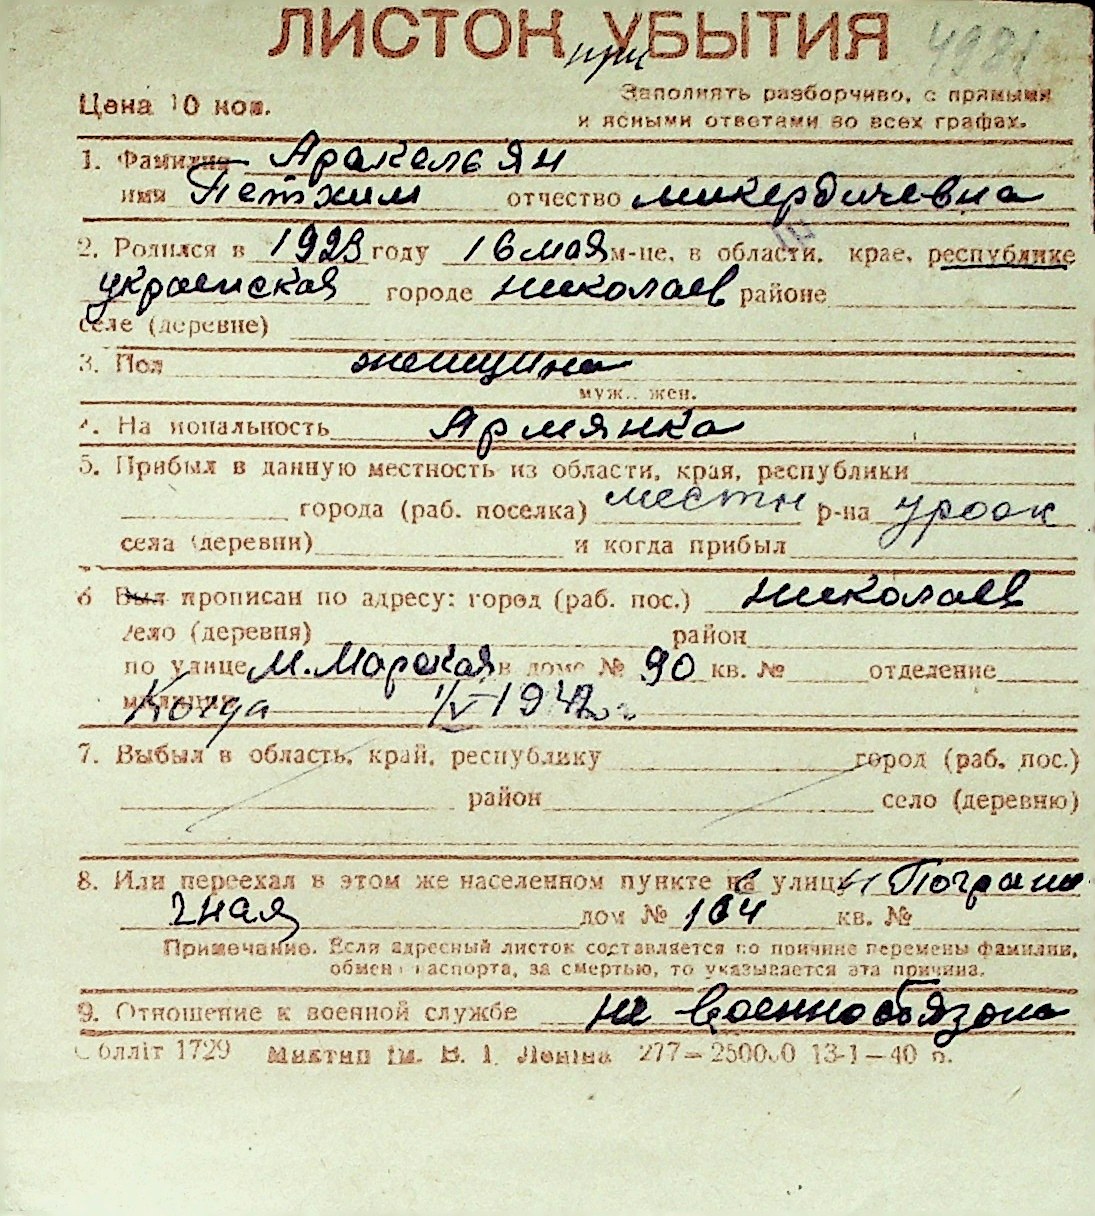 ЛИСТОК УБЫТИЯ
при
4981
Цена 10 коп.
Заполнять разборчиво, с прямыми
и ясными ответами во всех графах.
1. Фамилия Аракелян
имя отчество микердичевна
2. Родился в 1923 году 16 мая м-це, в области, крае, республике
украинская городе николаев районе
селе (деревне)
3. Пол женщина
муж., жен.
4. Национальность Армянка
5. Прибыл в данную местность из области, края, республики
города (раб. поселка) местн р-на урок
села (деревни) и когда прибыл
6 Был прописан по адресу: город (раб. пос.) николаев
село (деревня) район
по улице М. Марская в доме № 90 кв. № отделение
милиции Когда 1/V-1942 г
7. Выбыл в область, край, республику город (раб. пос.)
район село (деревню)
8. Или переехал в этом же населенном пункте на улицу Погранич
чная дом № 164 кв. №
Примечание. Если адресный листок составляется по причине перемены фамилии,
обмена паспорта, за смертью, то указывается эта причина.
9. Отношение к военной службе не военнообязона
Облліт 1729 Миктип ім. В. І. Леніна 277—250000 13-1—40 р.